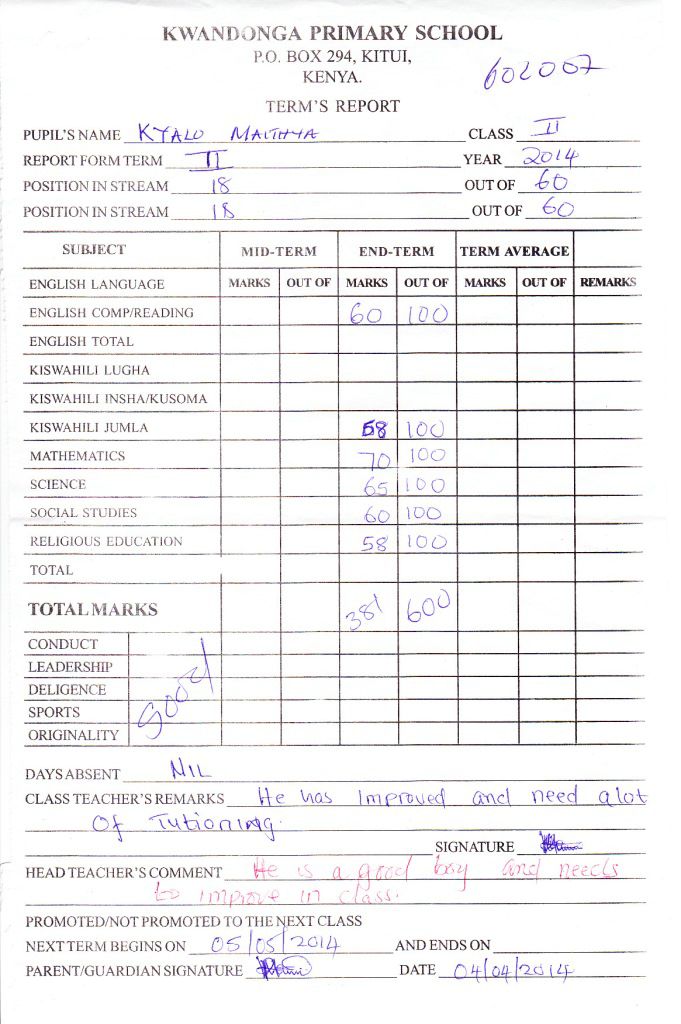 KWANDONGA PRIMARY SCHOOL
P.O. BOX 294, KITUI,
KENYA.
602007
TERM'S REPORT
PUPIL'S NAME KYALO MAITHYA CLASS II
REPORT FORM TERM II YEAR 2014
POSITION IN STREAM 18 OUT OF 60
POSITION IN STREAM 18 OUT OF 60
SUBJECT MID-TERM END-TERM TERM AVERAGE
ENGLISH LANGUAGE MARKS OUT OF MARKS OUT OF MARKS OUT OF REMARKS
ENGLISH COMP/READING 60 100
ENGLISH TOTAL
KISWAHILI LUGHA
KISWAHILI INSHA/KUSOMA
KISWAHILI JUMLA 68 100
MATHEMATICS 70 100
SCIENCE 65 100
SOCIAL STUDIES 60 100
RELIGIOUS EDUCATION 58 100
TOTAL
TOTAL MARKS 381 600
CONDUCT
LEADERSHIP
DELIGENCE good
SPORTS
ORIGINALITY
DAYS ABSENT NIL
CLASS TEACHER'S REMARKS He has improved and need alot
of Tutioning.
SIGNATURE
HEAD TEACHER'S COMMENT He is a good boy and needs
to improve in class.
PROMOTED/NOT PROMOTED TO THE NEXT CLASS
NEXT TERM BEGINS ON 05/05/2014 AND ENDS ON
PARENT/GUARDIAN SIGNATURE DATE 04/04/2014